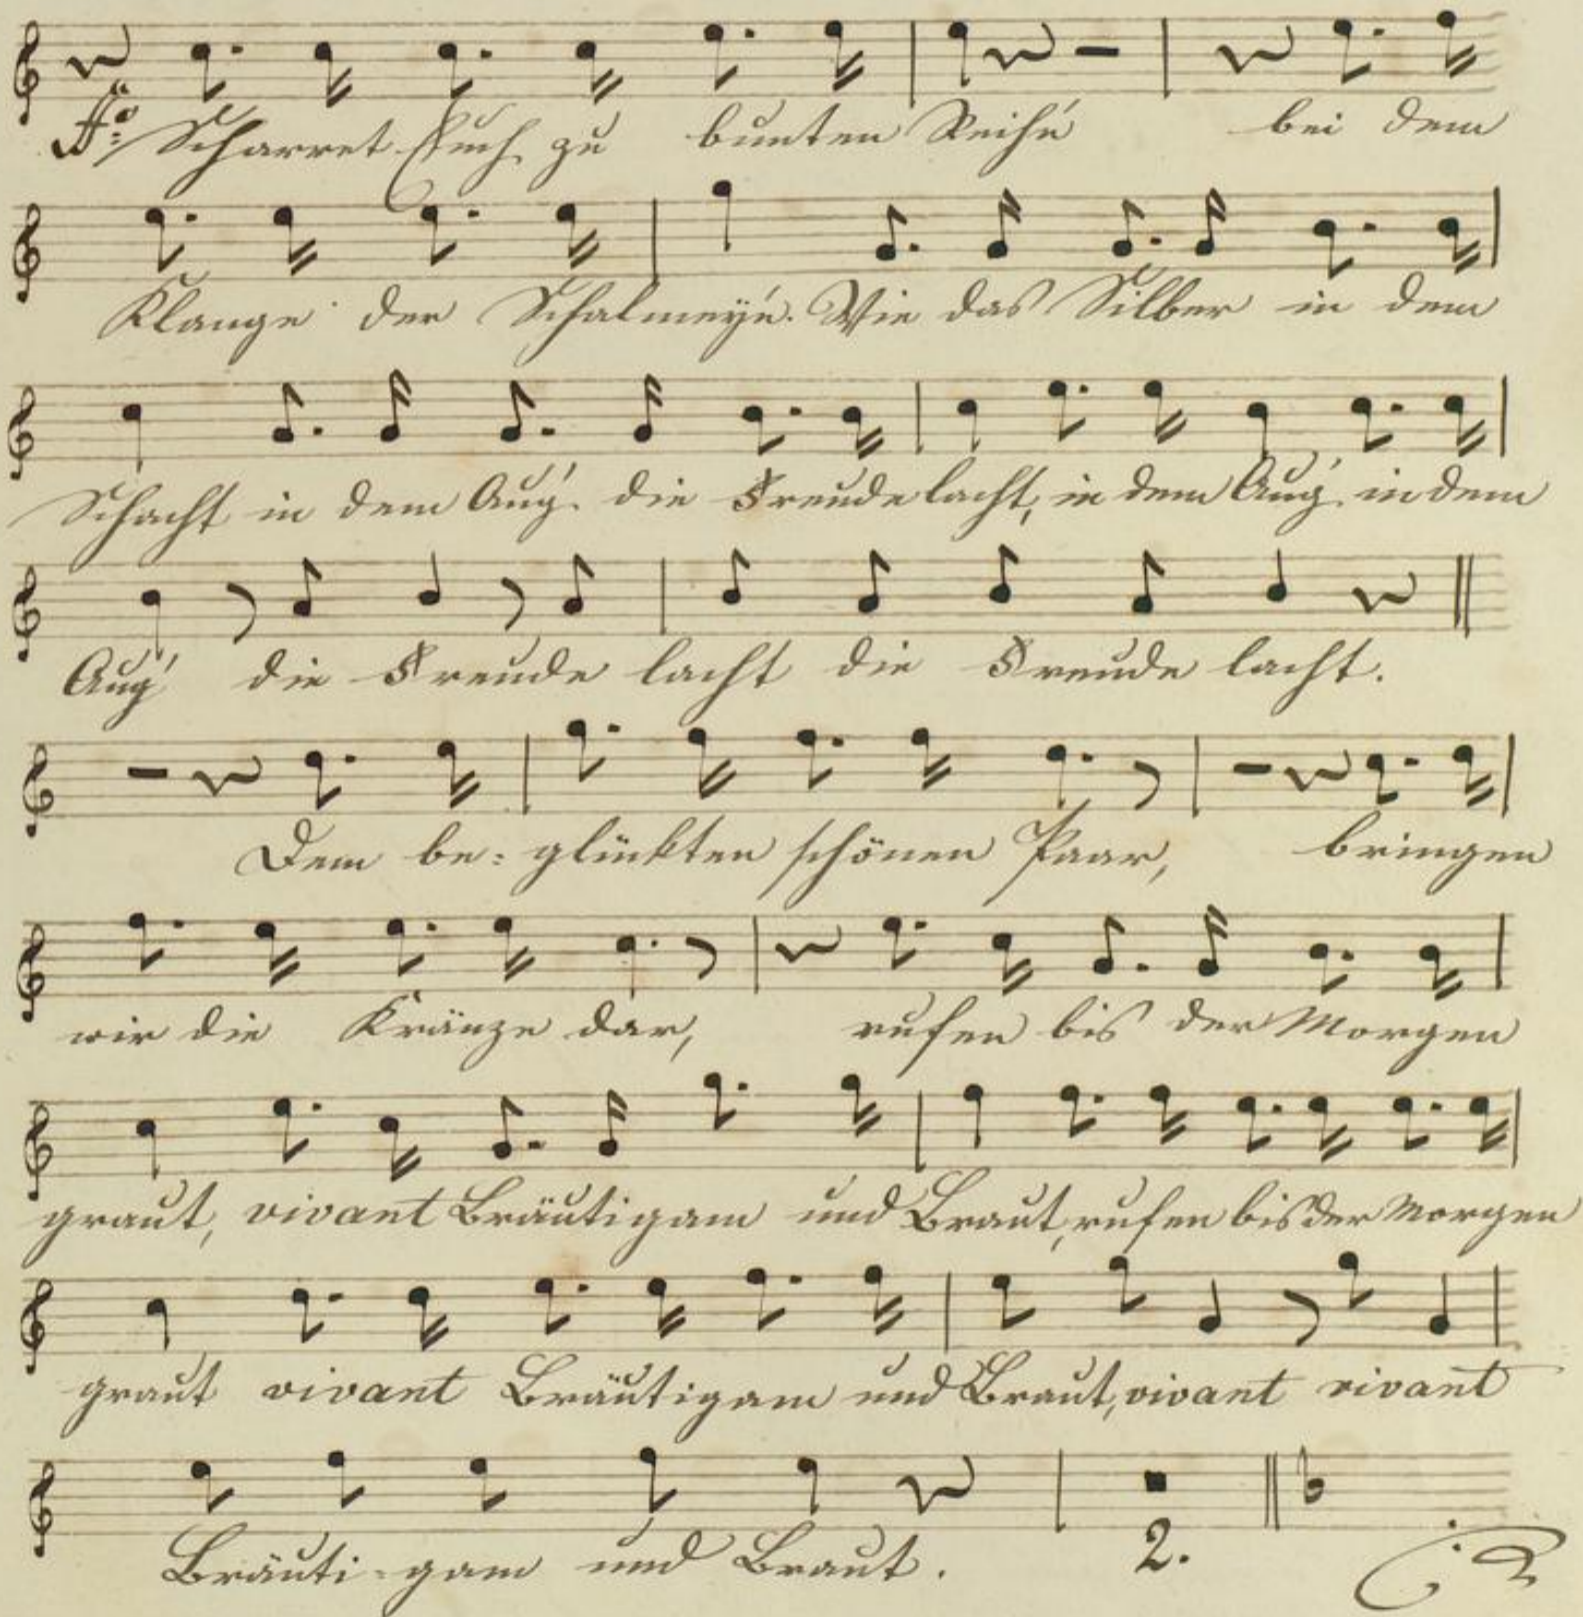 Scharret Euch zu bunten Reih'n bei dem
Klange der Schalmeyn. Wie das Silber in dem
Schacht in dem Aug' die Freude lacht, in dem Aug' in dem
Aug' die Freude lacht die Freude lacht.
Dem be= glückten schönen Paar, bringen
wir die Kränze dar, rufen bis der Morgen
graut, vivant Bräutigam und Braut, rufen bis der Morgen
graut vivant Bräutigam und Braut, vivant vivant
Bräuti=gam und Braut. 2.